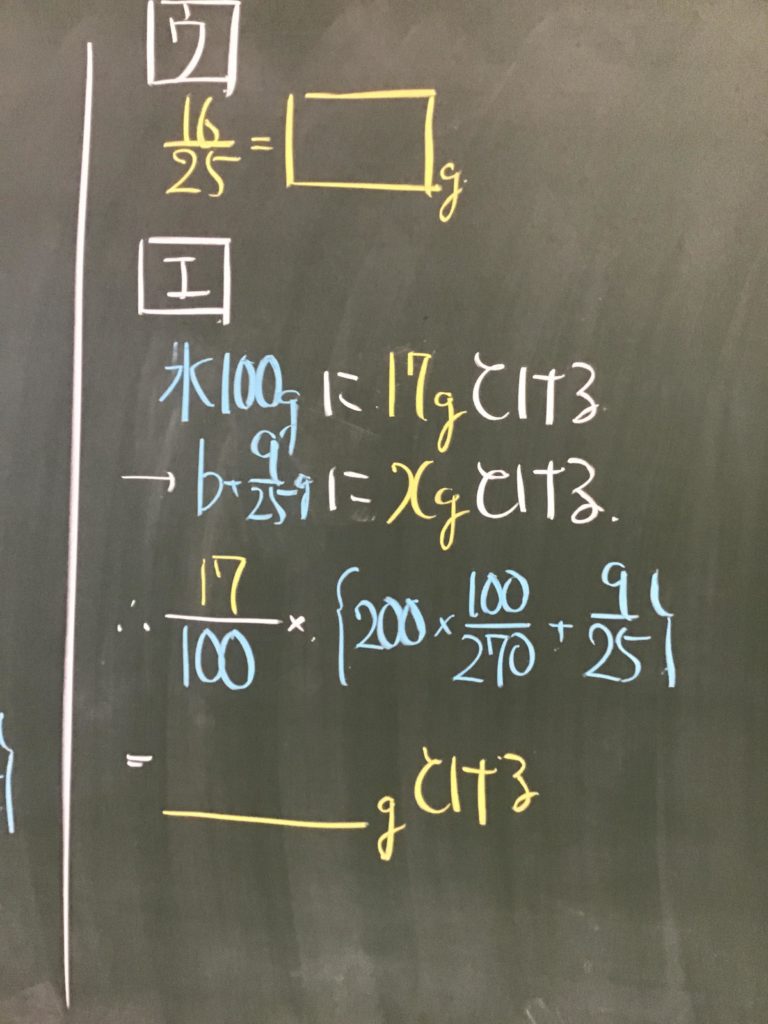 ウ
16/25 = □ g
エ
水100gに17gとける
→ b+9/25gにxgとける.
∴ 17/100 × {200 × 100/270 + 9/25}
= ＿＿＿ gとける